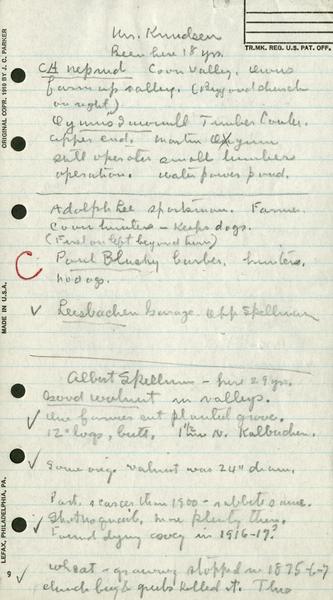 Mrs. Knudsen
Been here 18 yrs.
TR.MK. REG. U.S. PAT. OFF.
CA Neprud Coon Valley, owns
farm up valley. (Beyond church
on right)
Timber Coulee
upper end. Martin
still operates small lumber
operation. water power pond.
Adolph Lee sportsman. Farmer.
Coon hunters - keeps dogs.
(First on left beyond turn)
C Paul barber, hunters,
no dogs.
Garage. opp Spellman
Albert Spellum - here 29 yrs.
Good walnut in valleys.
One farmer cut planted grove.
12" logs, butt. 1 N.
Some orig. walnut was 24" diam.
Part. scarcer than 1900 - rabbits same.
more plenty then.
Found dying covey in 1916-17?
wheat - growing stopped in 1875-6-7
chinch bug & grubs killed it. This
ORIGINAL COPR. 1910 BY J. C. PARKER
MADE IN U.S.A.
LEFAX, PHILADELPHIA, PA.
9